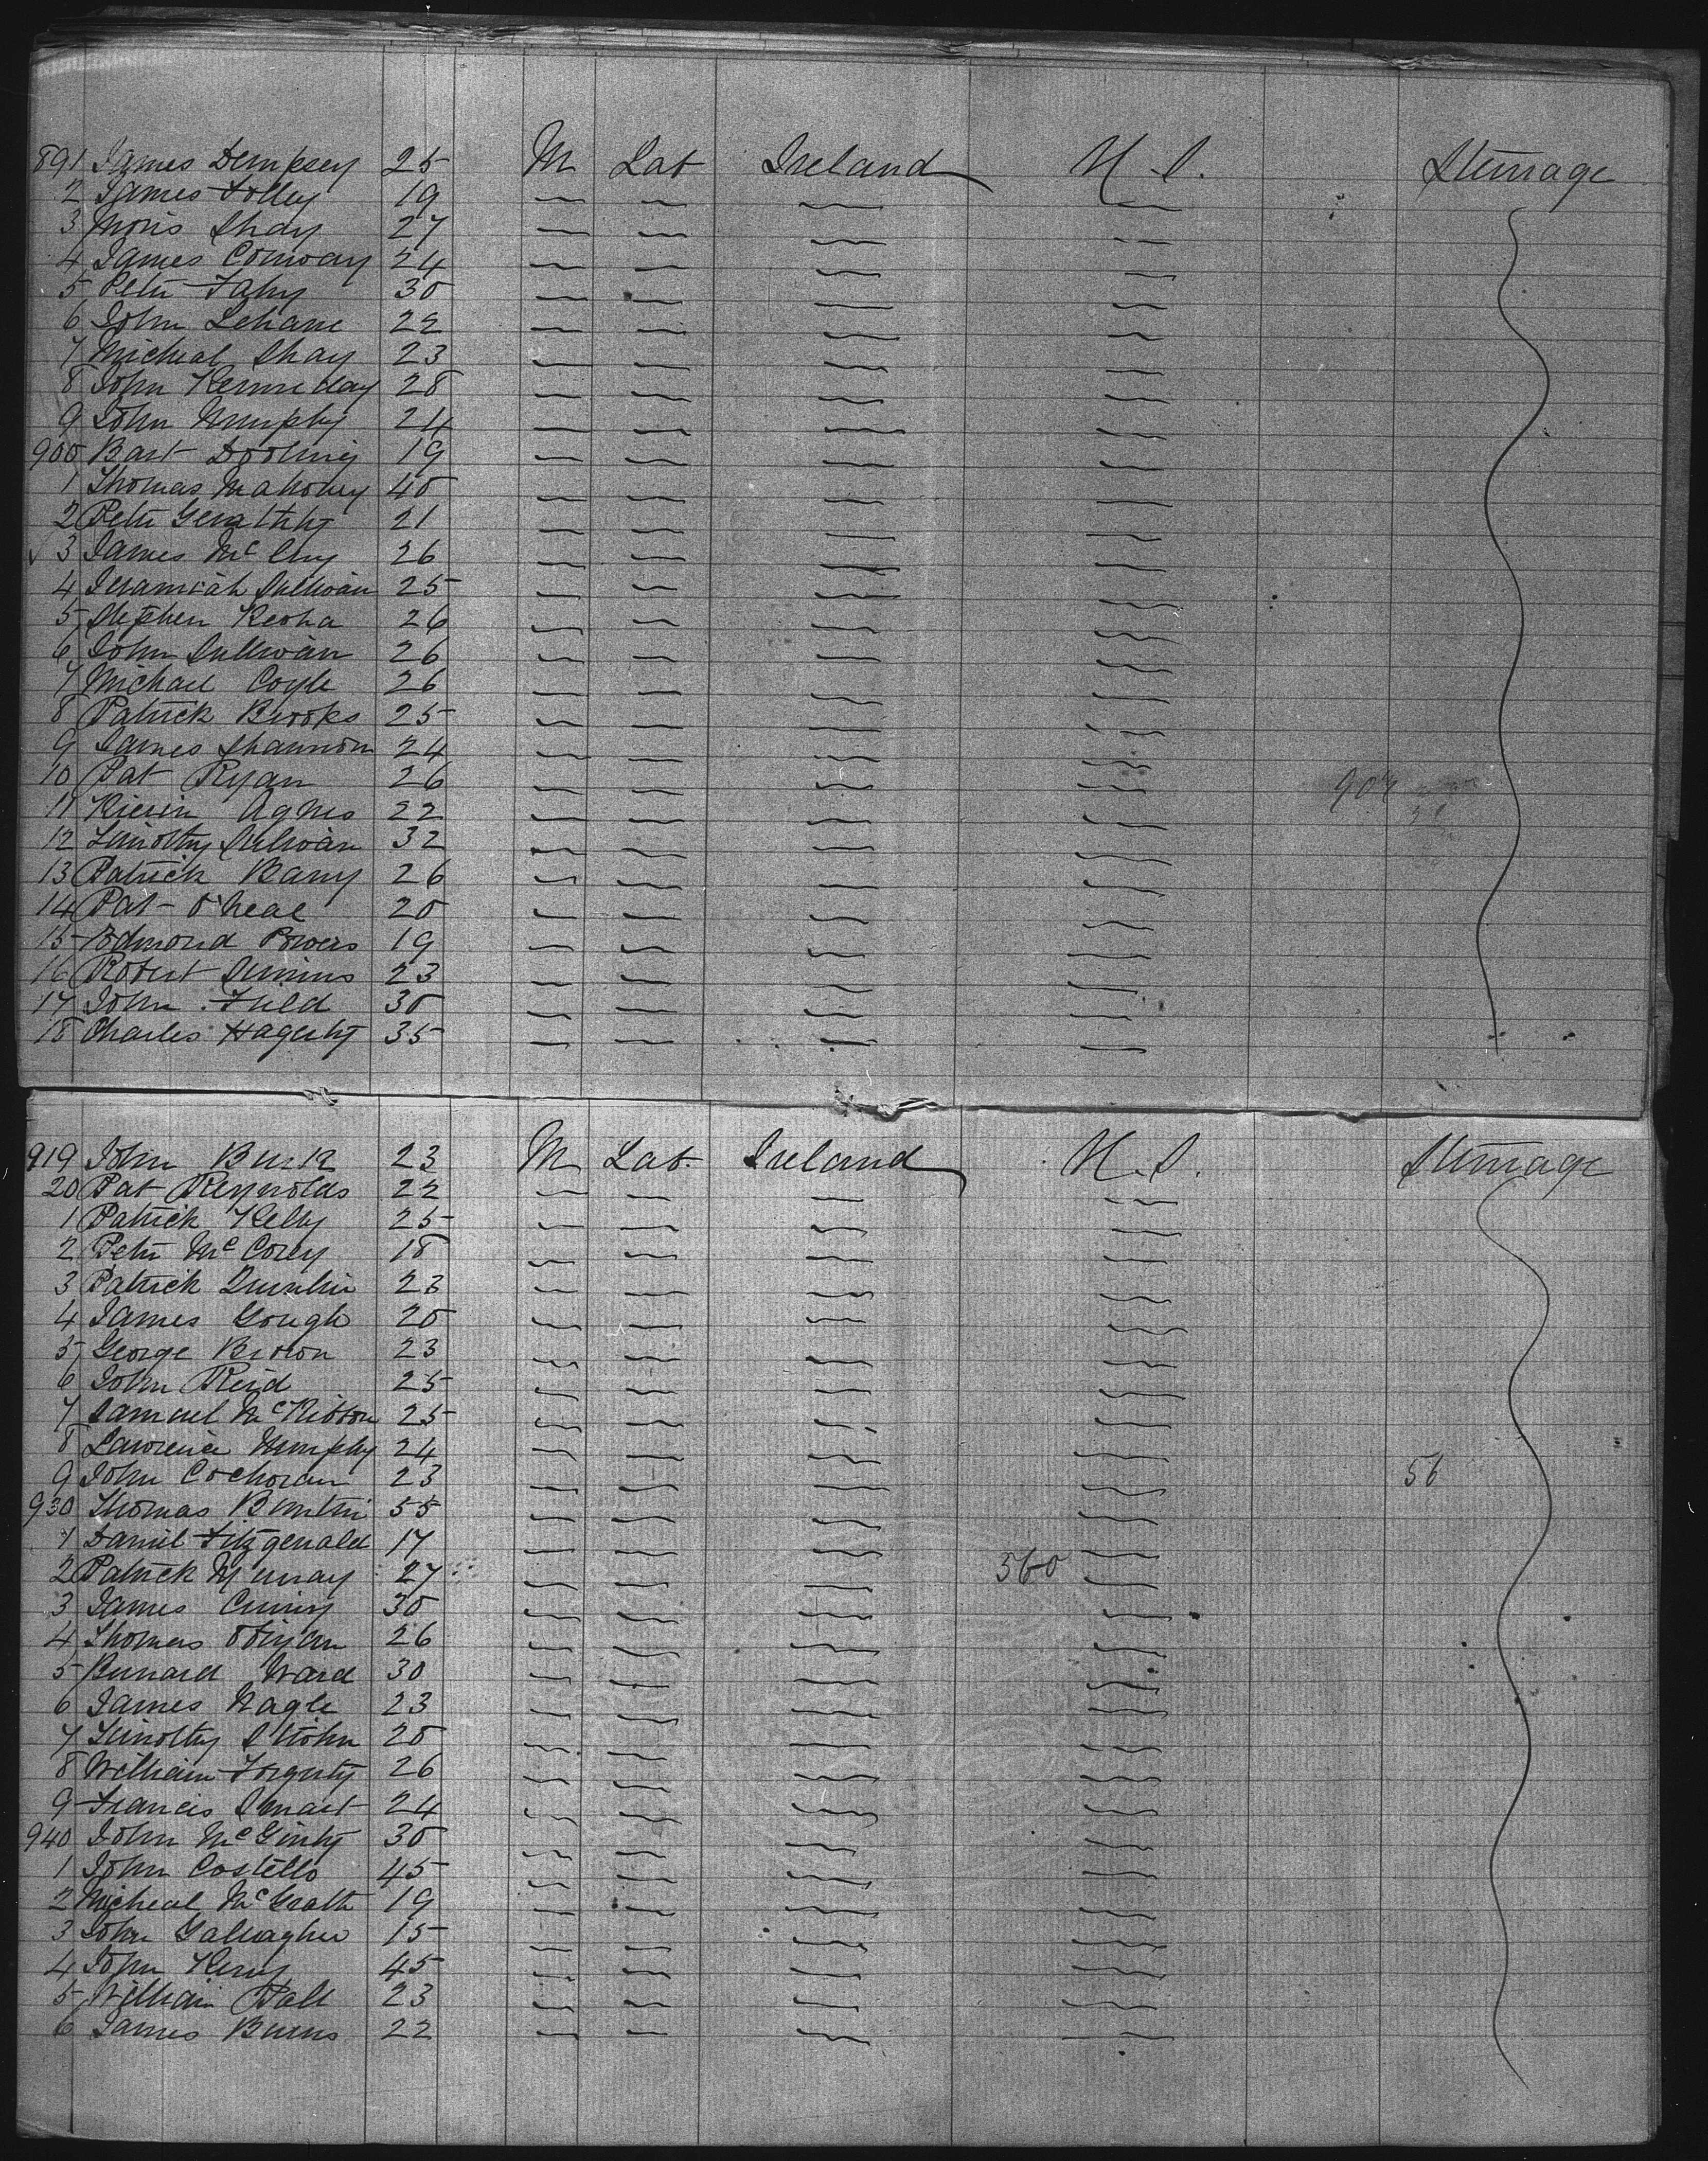 891 James Dempsey 25 M Lab Ireland U.S. Steerage
2 James Folley 19
3 Moris Shay 27
4 James Conway 24
5 Peter Fahy 30
6 John Lehane 22
7 Micheal Shay 23
8 John Kenneday 28
9 John Murphy 24
900 Bart Dooling 19
1 Thomas Mahoney 40
2 Peter Geralthty 21
3 James 26
4 Jeramiah Sullivan 25
5 Stephen Keoha 26
6 John Sullivan 26
7 Michael Coyle 26
8 Patrick Brooks 25
9 James Shannon 24
10 Pat Ryan 26
11 Agnes 22
12 Timothy Sulivan 32
13 Patrick Barry 26
14 Pat O'Neal 20
15 Edmond Powers 19
16 Robert 23
17 John Field 30
18 Charles Hagerty 35
919 John Burk 23 M Lab. Ireland U.S. Steerage
20 Pat Reynolds 22
1 Patrick Kelly 25
2 Peter McCorey 18
3 Patrick Quinlin 23
4 James Gough 20
5 George Brown 23
6 John Reid 25
7 Samuel McKibbon 25
8 Lawrence Murphy 24
9 John Cochoran 23 56
930 Thomas 55
1 Daniel Fitzgerald 17
2 Patrick Murray 27 560
3 James 30
4 Thomas 26
5 Bernard Ward 30
6 James Nagle 23
7 Timothy 20
8 William Forgerty 26
9 Francis Smart 24
940 John McGinty 30
1 John Costello 45
2 Micheal McGrath 19
3 John Gallagher 15
4 John 45
5 William Ball 23
6 James Burns 22